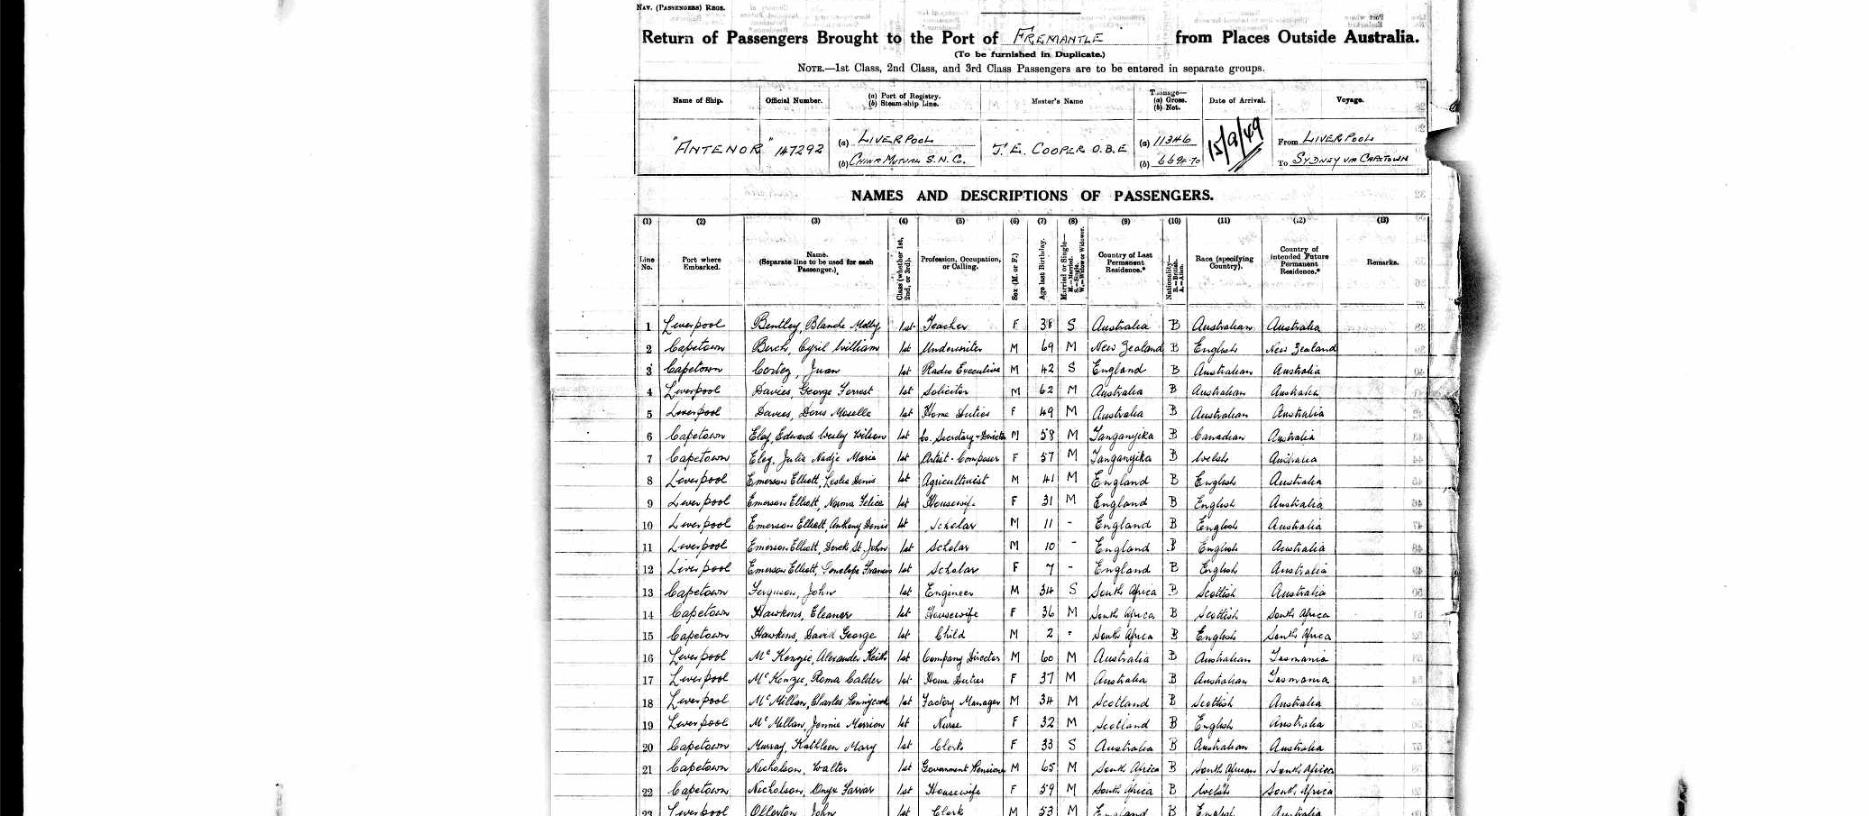 NAV. (PASSENGERS) REGS.
Return of Passengers Brought to the Port of FREMANTLE from Places Outside Australia.
(To be furnished in Duplicate.)
NOTE.—1st Class, 2nd Class, and 3rd Class Passengers are to be entered in separate groups.
Name of Ship. Official Number. (a) Port of Registry. (b) Steam-ship Line. Master's Name Tonnage— (a) Gross. (b) Net. Date of Arrival. Voyage.
"ANTENOR" 147292 (a) LIVERPOOL (b) CHINA MUTUAL S.N.C. J. E. COOPER O.B.E (a) 11346 (b) 15/9/49 From LIVERPOOL To SYDNEY VIA CAPETOWN
NAMES AND DESCRIPTIONS OF PASSENGERS.
(1) (2) (3) (4) (5) (6) (7) (8) (9) (10) (11) (12) (13)
Line No. Port where Embarked. Name. (Separate line to be used for each Passenger.) Class (whether 1st, 2nd, or 3rd). Profession, Occupation, or Calling. Sex (M. or F.) Age last Birthday. Married or Single— M.=Married. S.=Single. W.=Widow or Widower. Country of Last Permanent Residence.* Nationality— B.=British. A.=Alien. Race (specifying Country). Country of intended Future Permanent Residence.* Remarks.
1 Liverpool Bentley, Blanche Molly 1st Teacher F 38 S Australia B Australian Australia
2 Capetown Birch, Cyril William 1st Underwriter M 69 M New Zealand B English New Zealand
3 Capetown Cortez, Juan 1st Radio Executive M 42 S England B Australian Australia
4 Liverpool Davies, George Forrest 1st Solicitor M 62 M Australia B Australian Australia
5 Liverpool Davies, Doris Moselle 1st Home Duties F 49 M Australia B Australian Australia
6 Capetown Eley, Edward Wesley Wilson 1st Co. Secretary-Director M 58 M Tanganyika B Canadian Australia
7 Capetown Eley, Julia Nadje Maria 1st Artist-Composer F 57 M Tanganyika B Welsh Australia
8 Liverpool Emerson Elliott, Leslie Denis 1st Agriculturist M 41 M England B English Australia
9 Liverpool Emerson Elliott, Norma Felice 1st Housewife F 31 M England B English Australia
10 Liverpool Emerson Elliott, Anthony Denis 1st Scholar M 11 - England B English Australia
11 Liverpool Emerson Elliott, Derek St. John 1st Scholar M 10 - England B English Australia
12 Liverpool Emerson Elliott, Penelope Frances 1st Scholar F 7 - England B English Australia
13 Capetown Ferguson, John 1st Engineer M 34 S South Africa B Scottish Australia
14 Capetown Hawkins, Eleanor 1st Housewife F 36 M South Africa B Scottish South Africa
15 Capetown Hawkins, David George 1st Child M 2 - South Africa B English South Africa
16 Liverpool McKenzie, Alexander Keith 1st Company Director M 60 M Australia B Australian Tasmania
17 Liverpool McKenzie, Roma Calder 1st Home Duties F 37 M Australia B Australian Tasmania
18 Liverpool McMillan, Charles 1st Factory Manager M 34 M Scotland B Scottish Australia
19 Liverpool McMillan, Jennie Marrion 1st Nurse F 32 M Scotland B English Australia
20 Capetown Murray, Kathleen Mary 1st Clerk F 33 S Australia B Australian Australia
21 Capetown Nicholson, Walter 1st Government Pensioner M 65 M South Africa B South African South Africa
22 Capetown Nicholson, Farrar 1st Housewife F 59 M South Africa B Welsh South Africa
23 Liverpool Ollerton, John 1st Clerk M 53 M England B English Australia